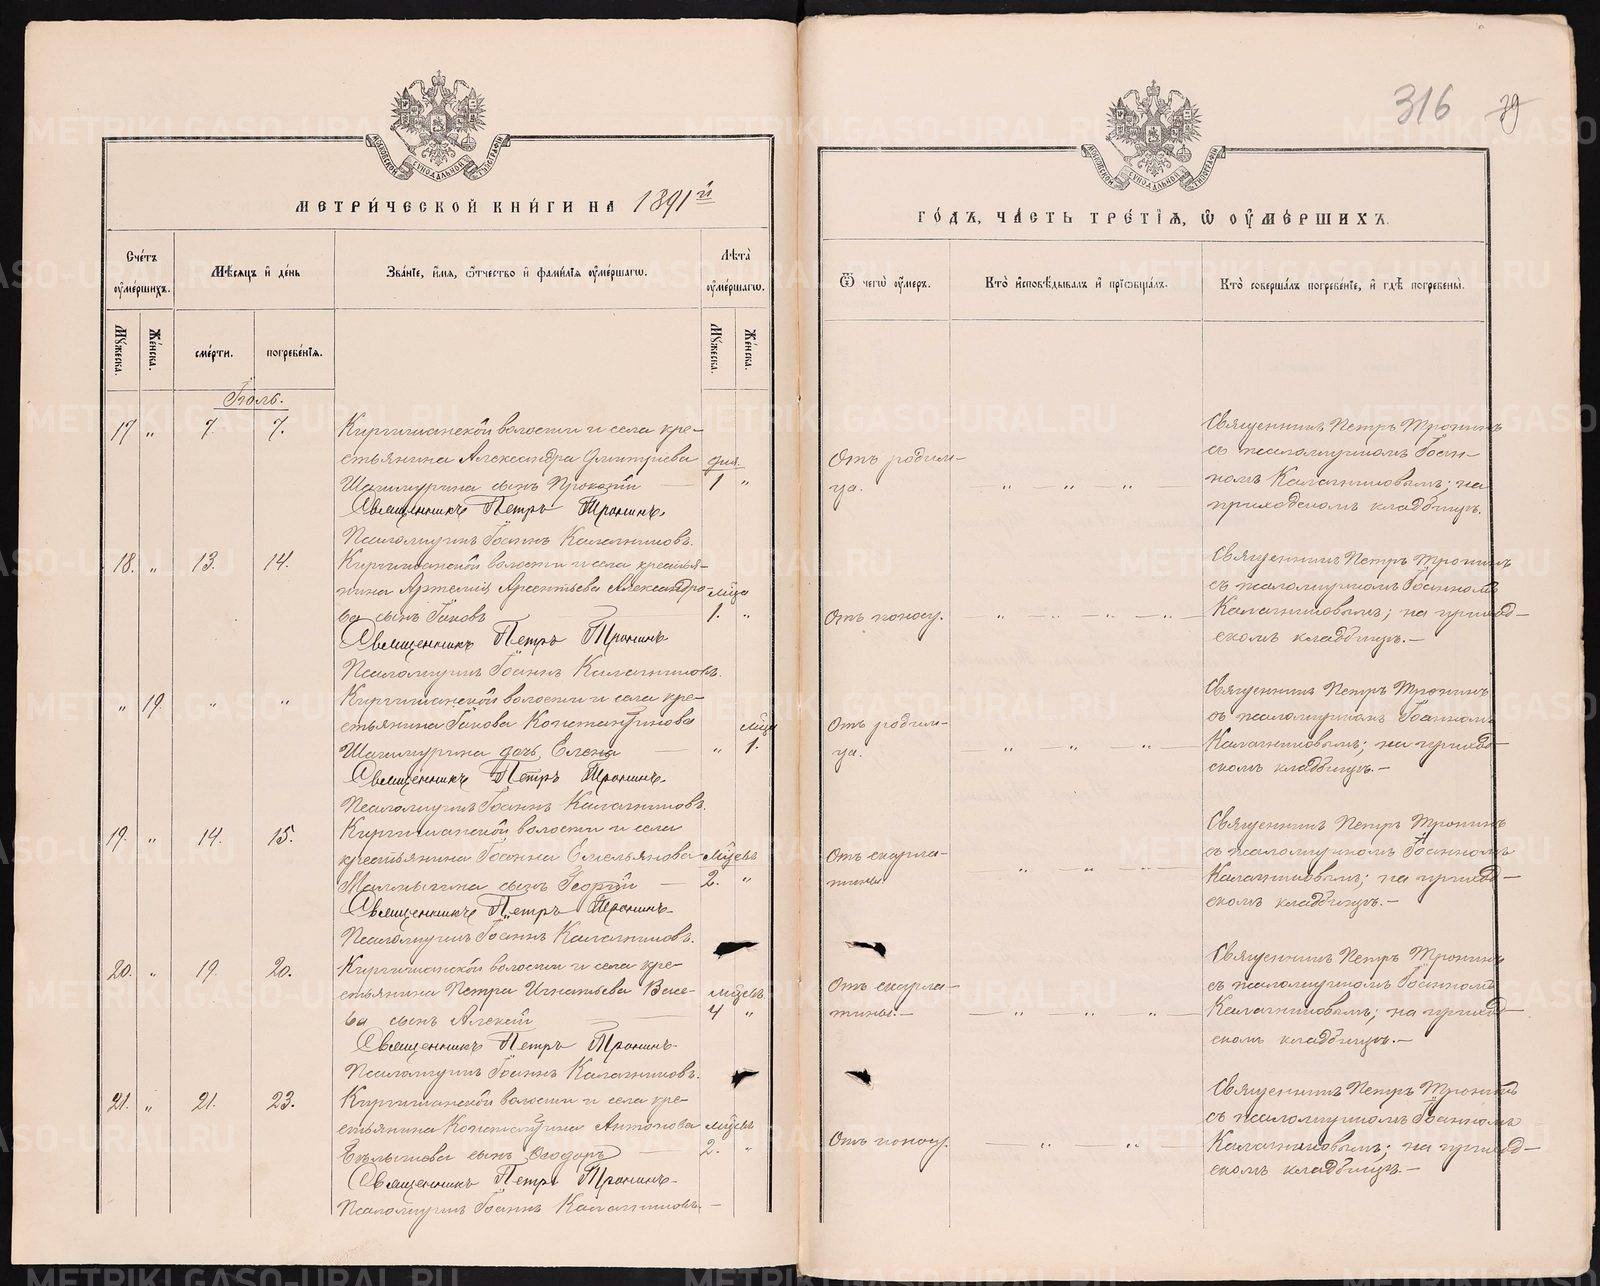 МЕТРИ́ЧЕСКОЙ КНИ́ГИ НА 1891й
Сче́тъ оу҆ме́ршихъ.
Мѣ́сѧцъ и҆ де́нь
Зва́нїе, и҆́мѧ, ѻ҆́тчество и҆ фами́лїѧ оу҆ме́ршагѡ.
Лѣ́та оу҆ме́ршагѡ.
Мꙋ́жеска.
Же́нска.
сме́рти.
погребе́нїѧ.
Мꙋ́жеска.
Же́нска.
Іюль.
17 " 7. 7. Киргишанской волости и села кре-
стьянина Александра Дмитріева дня.
Шагимурина сынъ Прокопій — 1 "
Священникъ Петръ Тронинъ.
Псаломщикъ Іоаннъ Калашниковъ.
18. " 13. 14. Киргишанской волости и села крестья-
нина Артемія Арсентьева Александро- мѣся
ва сынъ Іаковъ — 1. "
Священникъ Петръ Тронинъ
Псаломщикъ Іоаннъ Калашниковъ.
" 19. " " Киргишанской волости и села кре-
стьянина Іакова Константинова мѣся
Шагимурина дочь Елена — " 1.
Священникъ Петръ Тронинъ.
Псаломщикъ Іоаннъ Калашниковъ.
19. " 14. 15. Киргишанской волости и села
крестьянина Іоанна Емельянова мѣсевъ
сынъ Георгій — 2. "
Священникъ Петръ Тронинъ.
Псаломщикъ Іоаннъ Калашниковъ.
20. " 19. 20. Киргишанской волости и села кре-
стьянина Петра Игнатьева Васе-
ва сынъ Алексій — 4 "
Священникъ Петръ Тронинъ.
Псаломщикъ Іоаннъ Калашниковъ.
21. " 21. 23. Киргишанской волости и села кре-
стьянина Константина Антонова
сынъ Ѳеодоръ — 2. "
Священникъ Петръ Тронинъ.
Псаломщикъ Іоаннъ Калашниковъ. —
316
39
ГО́ДЪ, ЧА́СТЬ ТРЕ́ТЇѦ, Ѡ҆ ОУ҆МЕ́РШИХЪ.
Ѿ чегѡ̀ оу҆́меръ.
Кто̀ и҆сповѣ́дывалъ и҆ прїѡбща́лъ.
Кто̀ соверша́лъ погребе́нїе, и҆ гдѣ̀ погребены̀.
Отъ родим-
ца.
Священникъ Петръ Тронинъ
съ псаломщикомъ Іоан-
номъ Калашниковымъ; на
приходскомъ кладбищѣ.
Отъ поносу.
Священникъ Петръ Тронинъ
съ псаломщикомъ Іоанномъ
Калашниковымъ; на приход-
скомъ кладбищѣ. —
Отъ родим-
ца.
Священникъ Петръ Тронинъ
съ псаломщикомъ Іоанномъ
Калашниковымъ; на приход-
скомъ кладбищѣ. —
Отъ скарла-
тины.
Священникъ Петръ Тронинъ
съ псаломщикомъ Іоанномъ
Калашниковымъ; на приход-
скомъ кладбищѣ. —
Отъ скарла-
тины. —
Священникъ Петръ Тронинъ
съ псаломщикомъ Іоанномъ
Калашниковымъ; на приход-
скомъ кладбищѣ. —
Отъ поносу.
Священникъ Петръ Тронинъ
съ псаломщикомъ Іоанномъ
Калашниковымъ; на приход-
скомъ кладбищѣ. —
METRIKI.GASO-URAL.RU